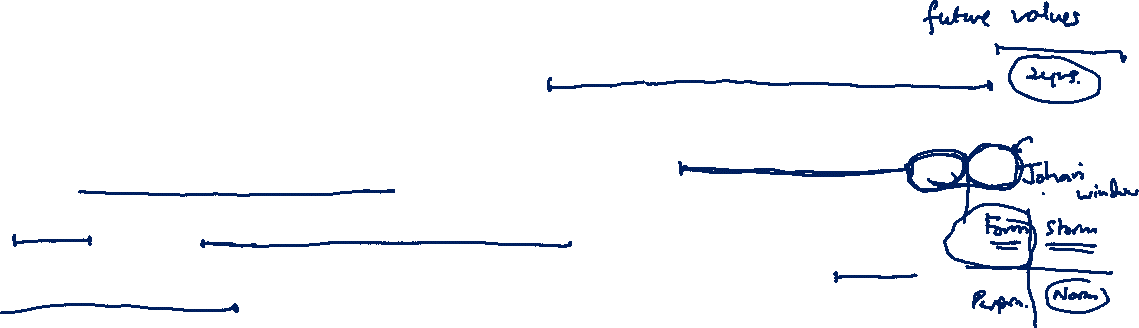 future values
2yrs.
Johari
window
Form Storm
Perform. Norm